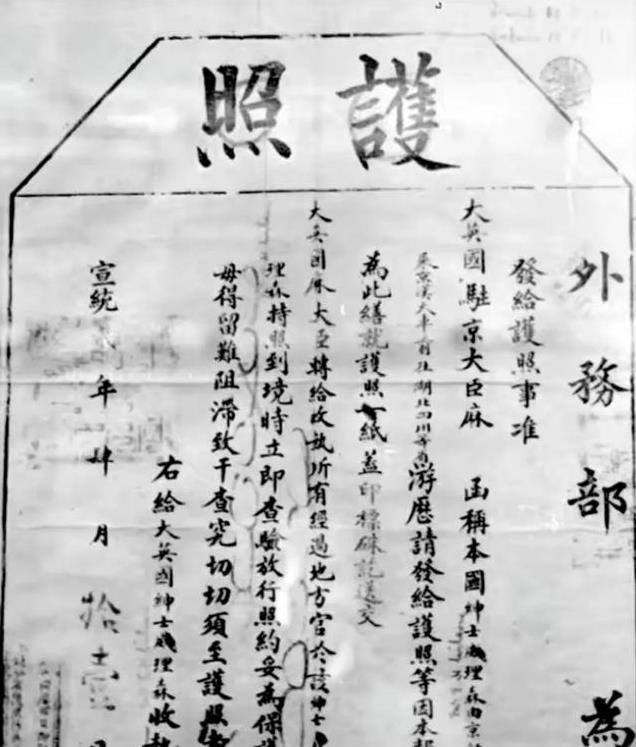 護照
外務部 為
發給護照事准
大英國駐京大臣麻 函稱本國紳士 理森由京
乘京漢火車前往湖北四川等省游歷請發給護照等因本部
為此繕就護照一紙蓋印標硃訖送交
大英國麻大臣轉給收執所有經過地方官於該紳士
理森持照到境時立即查驗放行照約妥為保護
毋得留難阻滯致干查究切切須至護照者
右給大英國紳士 理森收執
宣統 年肆月拾